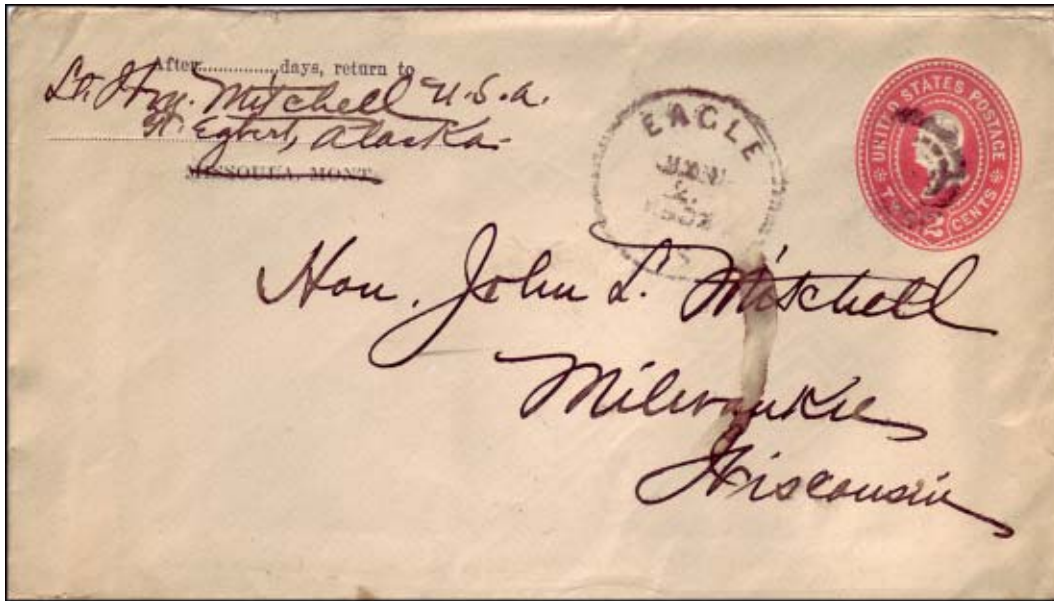 After..............days, return to
Lt. Wm. Mitchell U.S.A.
Ft. Egbert, Alaska
MISSOULA, MONT.
EAGLE
UNITED STATES POSTAGE
TWO CENTS
2
Hon. John L. Mitchell
Milwaukee
Wisconsin